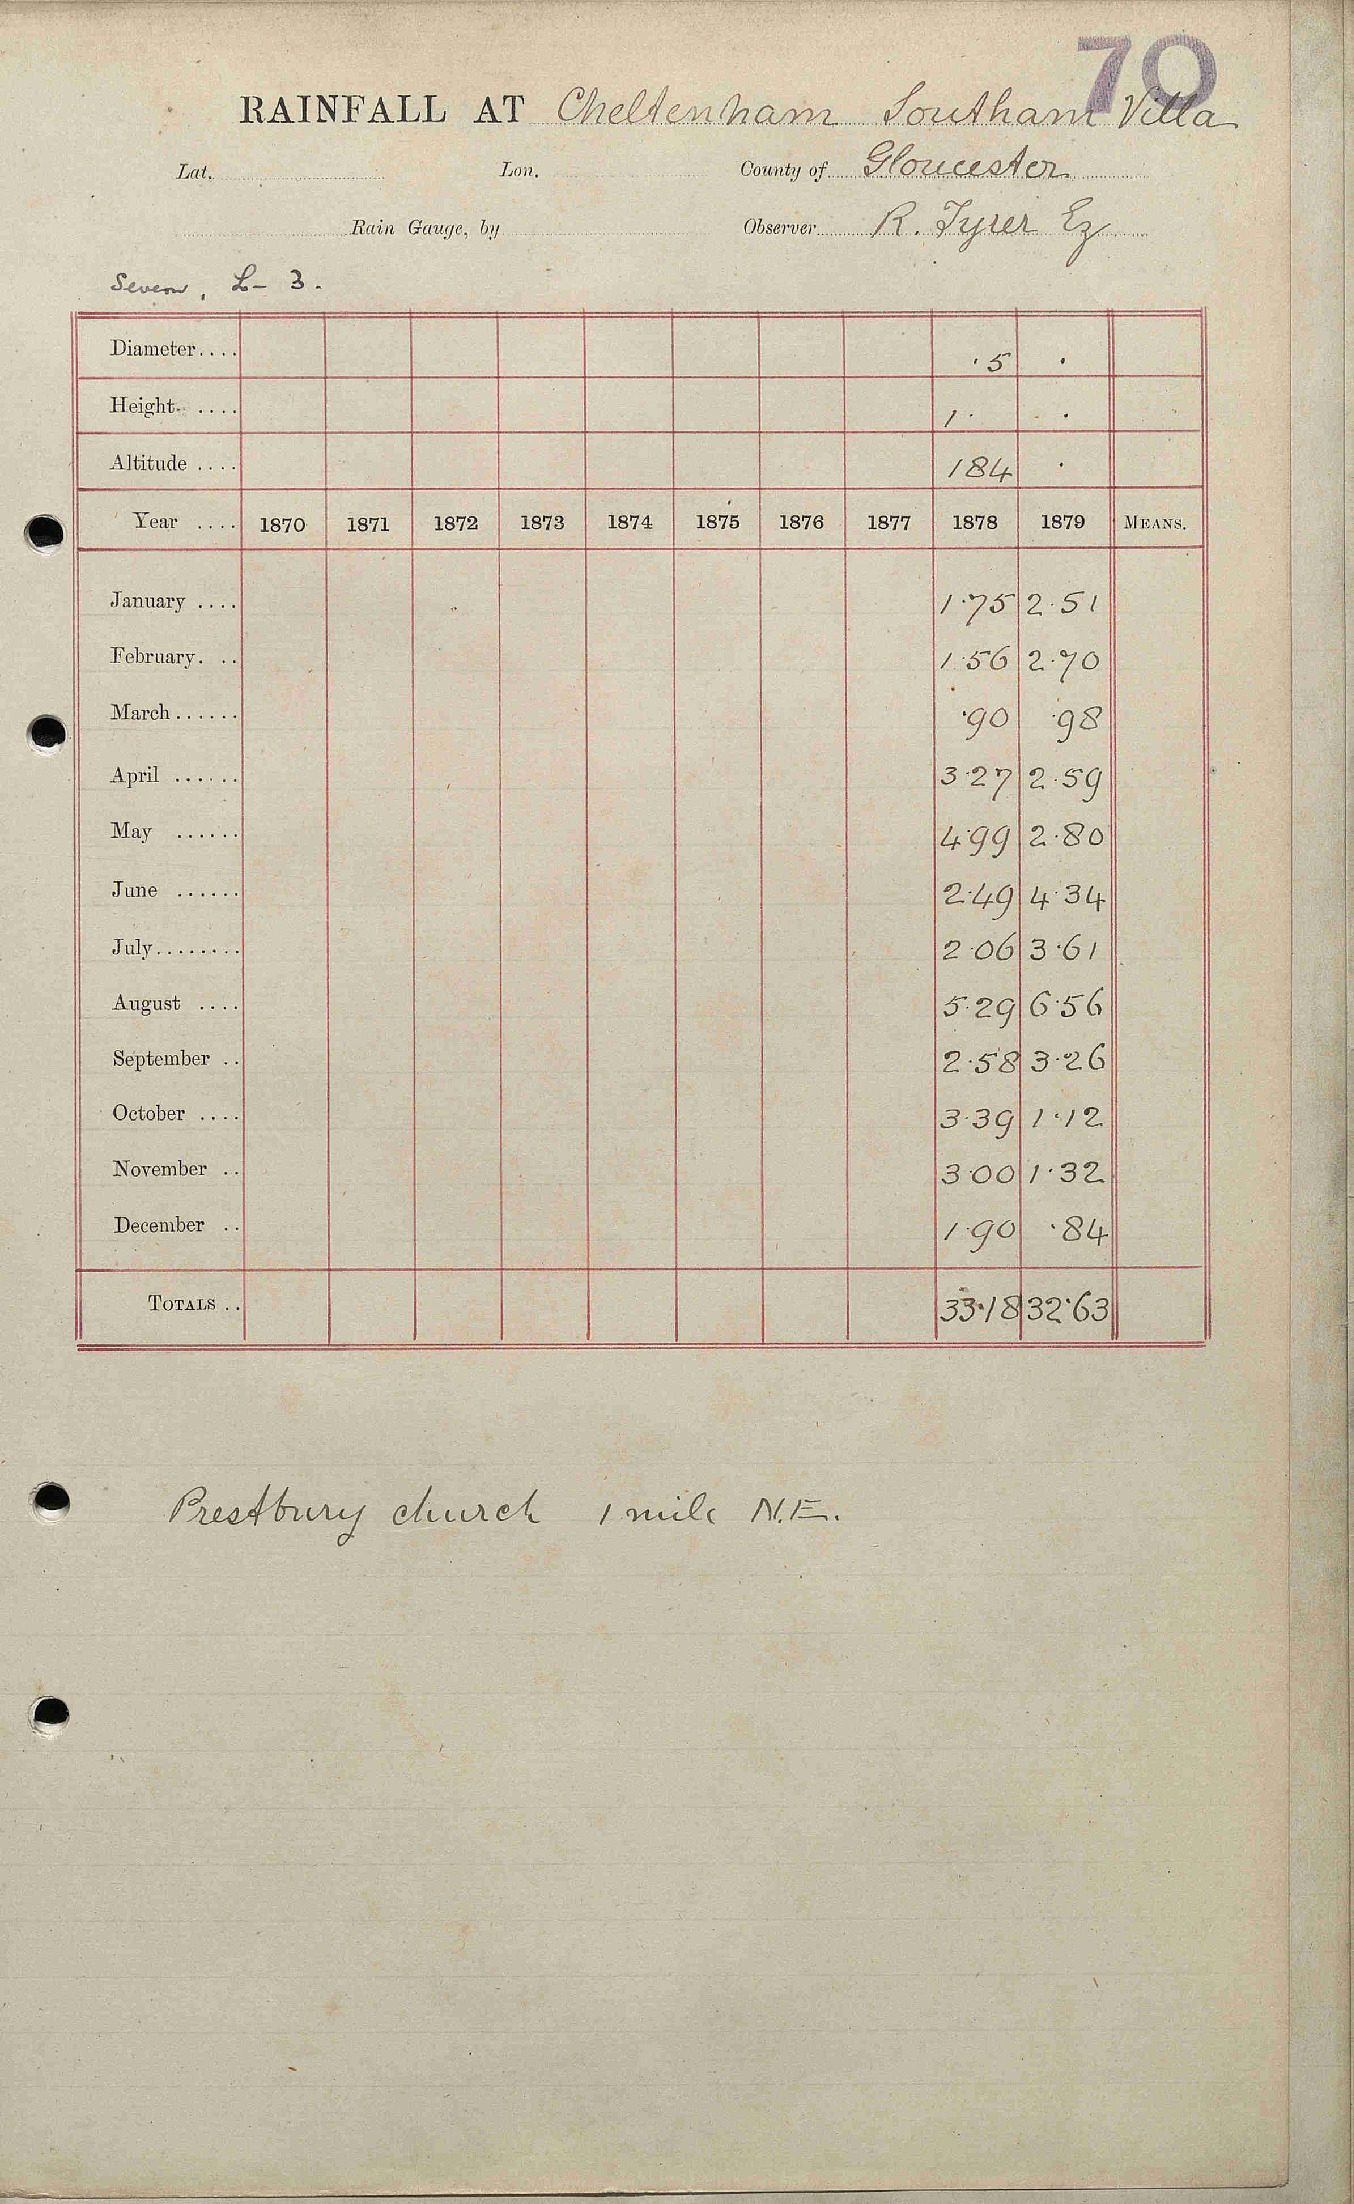 70
RAINFALL AT Cheltenham Southam Villa
Lat. Lon. County of Gloucester
Rain Gauge, by Observer R. Tyrer Ez
Severn, L- 3.
Diameter.... ·5 ·
Height .... 1· ·
Altitude .... 184 ·
Year .... 1870 1871 1872 1873 1874 1875 1876 1877 1878 1879 MEANS.
January .... 1·75 2·51
February. .. 1·56 2·70
March ...... ·90 ·98
April ...... 3·27 2·59
May ...... 4·99 2·80
June ...... 2·49 4·34
July........ 2·06 3·61
August .... 5·29 6·56
September .. 2·58 3·26
October .... 3·39 1·12
November .. 3·00 1·32
December .. 1·90 ·84
TOTALS .. 33·18 32·63
Prestbury church 1 mile N.E.